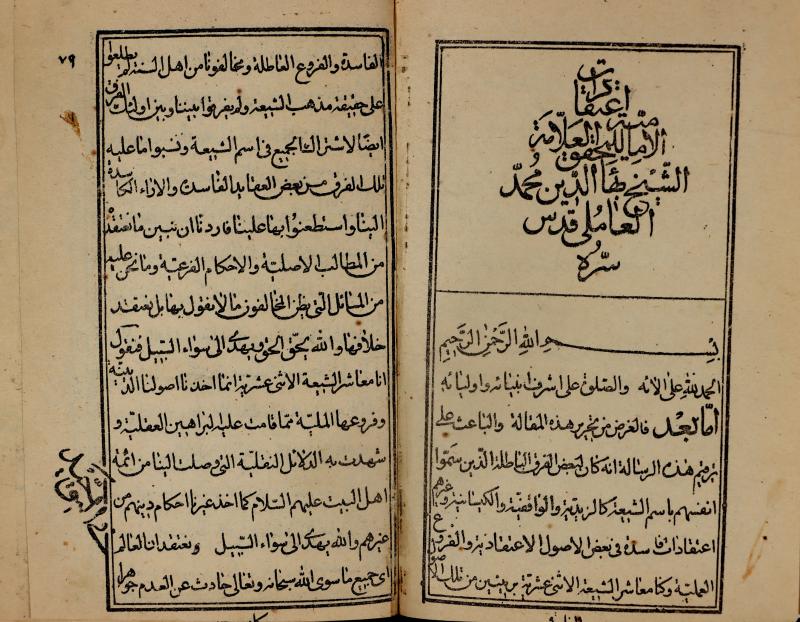 اعتقادات
الامامية للمحقق العلامة
الشيخ بهاء الدين محمد
العاملى قدس
سره
بسم الله الرحمن الرحيم
الحمد لله على الائه والصلوة على اشرف انبيائه واوليائه
اما بعد فالغرض من تحرير هذه المقالة والباعث على
ترقيم هذه الرسالة انه كان لبعض الفرق الباطلة الذين سموا
انفسهم باسم الشيعة كالزيدية والواقفية والكيسانية وغيرهم
اعتقادات فاسدة فى بعض الاصول الاعتقادية والفروع
العملية وكنا معاشر الشيعة الاثنى عشرية بريئين من تلك الاصول
٧٩
الفاسدة والفروع العاطلة ومخالفونا من اهل السنة لم يطلعوا
على حقيقة مذهب الشيعة ولم يفرقوا بيننا وبين اولئك الفرق
ايضا لاشتراك الجميع فى اسم الشيعة ونسبوا ما عليه
تلك الفرق من بعض العقايد الفاسدة والاراء الكاسدة
الينا واستطعنوا بها علينا فاردنا ان نبين ما نعتقده
من المطالب الاصلية والاحكام الفرعية وما نحن عليه
من المسائل التى يظن المخالفون ما لا نقول بها بل نعتقد
خلافها والله يحق الحق ويهدى الى سواء السبيل فنقول
انا معاشر الشيعة الاثنى عشرية انما اخذنا اصولنا الدينية
وفروعها الملية مما قامت عليه البراهين العقلية و
شهدت به الدلائل النقلية التى وصلت الينا من ائمة
اهل البيت عليهم السلام كما اخذ غيرنا احكام دينهم من
غيرهم والله يهدى الى سواء السبيل ونعتقد ان العالم
اى جميع ما سوى الله سبحانه وتعالى حادث عن العدم جواهرا